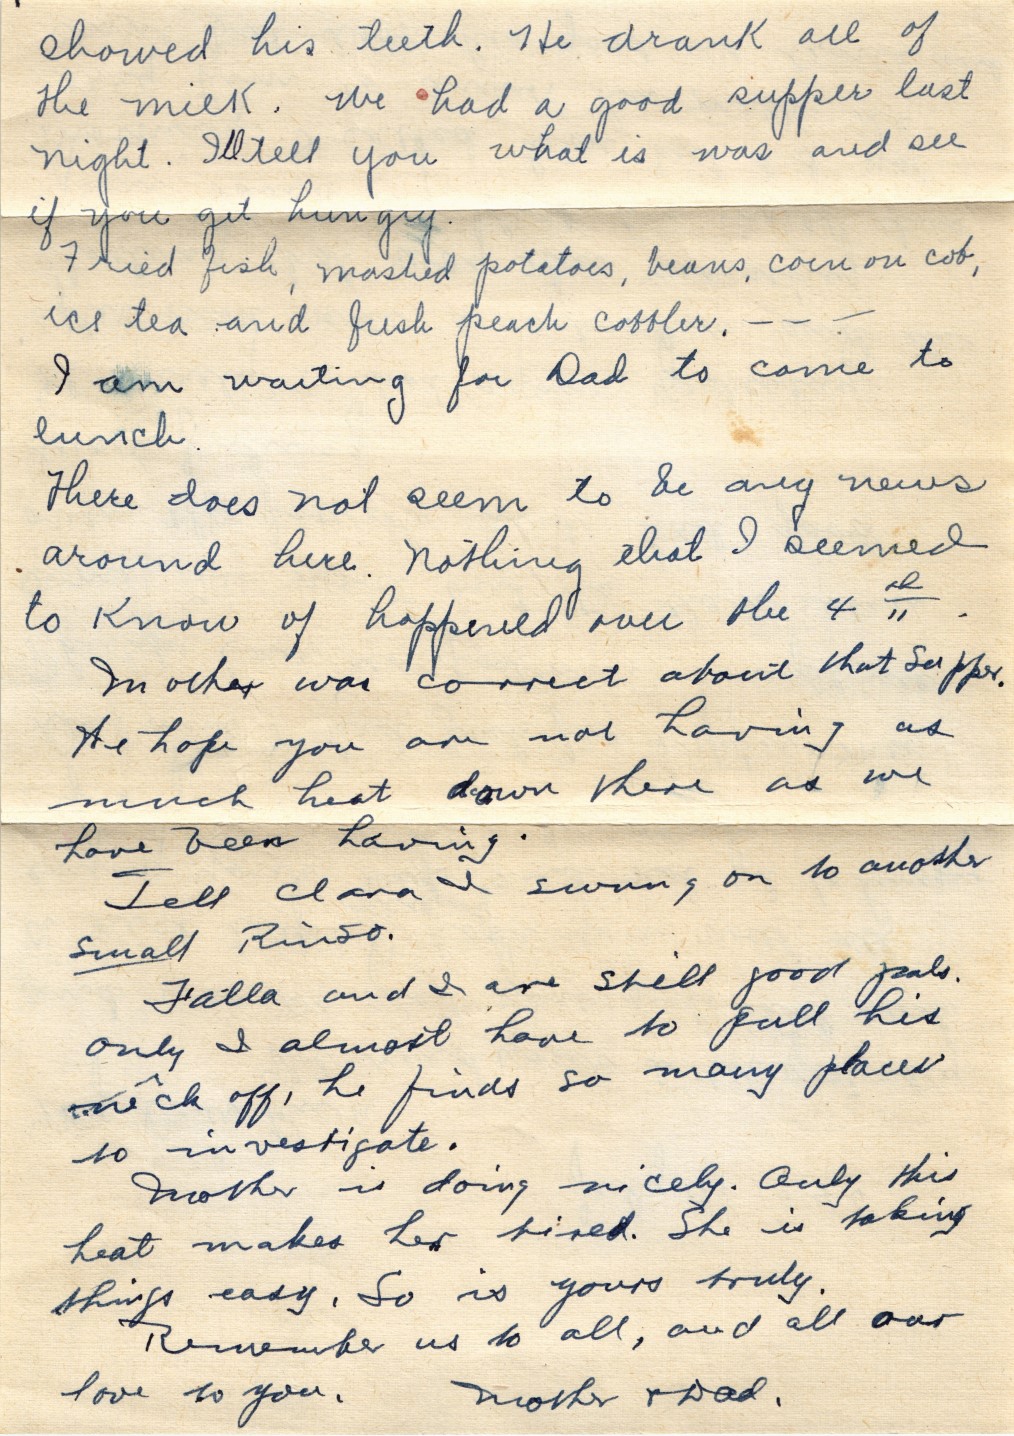 showed his teeth. He drank all of
the milk. We had a good supper last
night. I'll tell you what is was and see
if you get hungry.
Fried fish, mashed potatoes, beans, corn on cob,
ice tea and fresh peach cobbler. - - -
I am waiting for Dad to come to
lunch.
There does not seem to be any news
around here. Nothing that I seemed
to know of happened over the 4th.
Mother was correct about that supper.
We hope you are not having as
much heat down there as we
have been having.
Tell Clara I swung on to another
small Rinso.
Falla and I are still good pals.
only I almost have to pull his
neck off, he finds so many places
to investigate.
Mother is doing nicely. Only this
heat makes her tired. She is taking
things easy. So is yours truly.
Remember us to all, and all our
love to you. Mother & Dad.